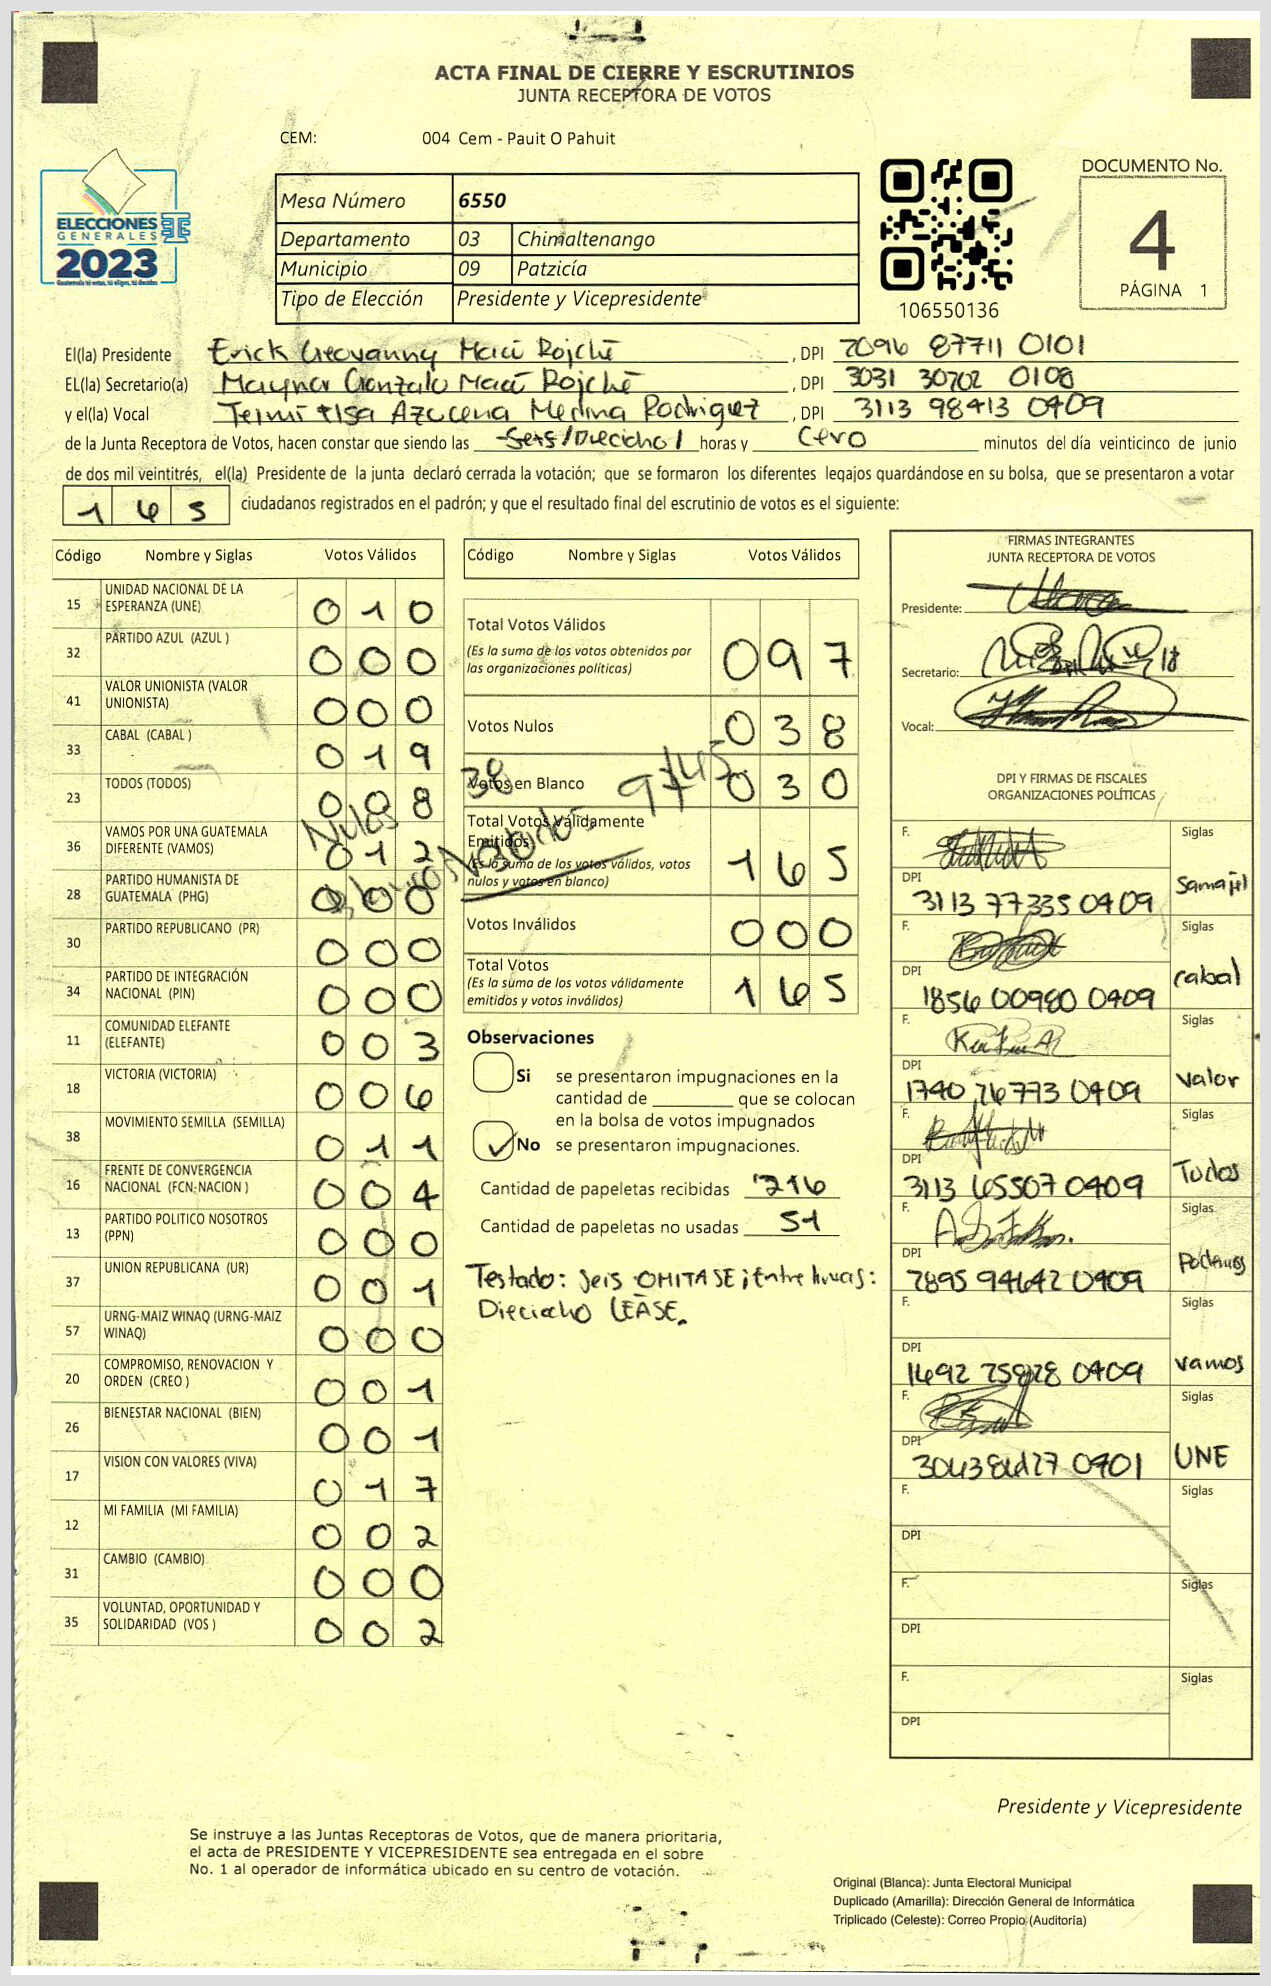 ACTA FINAL DE CIERRE Y ESCRUTINIOS
JUNTA RECEPTORA DE VOTOS
CEM: 004 Cem - Pauit O Pahuit
ELECCIONES
GENERALES
2023
Mesa Número 6550
Departamento 03 Chimaltenango
Municipio 09 Patzicía
Tipo de Elección Presidente y Vicepresidente
106550136
DOCUMENTO No.
4
PÁGINA 1
El(la) Presidente Erick Geovanny Macú Rojché, DPI 2096 87711 0101
EL(la) Secretario(a) Maynor Gonzalo Macú Rojché, DPI 3031 30702 0108
y el(la) Vocal Azucena Medina Rodriguez, DPI 3113 98413 0409
de la Junta Receptora de Votos, hacen constar que siendo las Seis/Dieciocho/ horas y Cero minutos del día veinticinco de junio
de dos mil veintitrés, el(la) Presidente de la junta declaró cerrada la votación; que se formaron los diferentes legajos quardándose en su bolsa, que se presentaron a votar
165 ciudadanos registrados en el padrón; y que el resultado final del escrutinio de votos es el siguiente:
Código Nombre y Siglas Votos Válidos
15 UNIDAD NACIONAL DE LA ESPERANZA (UNE) 010
32 PARTIDO AZUL (AZUL ) 000
41 VALOR UNIONISTA (VALOR UNIONISTA) 000
33 CABAL (CABAL ) 019
23 TODOS (TODOS) 008
36 VAMOS POR UNA GUATEMALA DIFERENTE (VAMOS) 012
28 PARTIDO HUMANISTA DE GUATEMALA (PHG) 000
30 PARTIDO REPUBLICANO (PR) 000
34 PARTIDO DE INTEGRACIÓN NACIONAL (PIN) 000
11 COMUNIDAD ELEFANTE (ELEFANTE) 003
18 VICTORIA (VICTORIA) 006
38 MOVIMIENTO SEMILLA (SEMILLA) 011
16 FRENTE DE CONVERGENCIA NACIONAL (FCN-NACION ) 004
13 PARTIDO POLITICO NOSOTROS (PPN) 000
37 UNION REPUBLICANA (UR) 001
57 URNG-MAIZ WINAQ (URNG-MAIZ WINAQ) 000
20 COMPROMISO, RENOVACION Y ORDEN (CREO ) 001
26 BIENESTAR NACIONAL (BIEN) 001
17 VISION CON VALORES (VIVA) 017
12 MI FAMILIA (MI FAMILIA) 002
31 CAMBIO (CAMBIO) 000
35 VOLUNTAD, OPORTUNIDAD Y SOLIDARIDAD (VOS ) 002
Nulos 38
Código Nombre y Siglas Votos Válidos
Total Votos Válidos 097
(Es la suma de los votos obtenidos por
las organizaciones políticas)
Votos Nulos 038
Votos en Blanco 030
Total Votos Válidamente
Emitidos 165
(Es la suma de los votos válidos, votos
nulos y votos en blanco)
Votos Inválidos 000
Total Votos 165
(Es la suma de los votos válidamente
emitidos y votos inválidos)
Observaciones
Si se presentaron impugnaciones en la
cantidad de ________ que se colocan
en la bolsa de votos impugnados
No se presentaron impugnaciones.
Cantidad de papeletas recibidas 216
Cantidad de papeletas no usadas 51
Testado: Seis OMITASE; Entre lineas:
Dieciocho LEASE.
FIRMAS INTEGRANTES
JUNTA RECEPTORA DE VOTOS
Presidente:
Secretario:
Vocal:
DPI Y FIRMAS DE FISCALES
ORGANIZACIONES POLÍTICAS
F. Siglas
DPI 3113 77335 0409 Samajel
F. Siglas
DPI 1856 00980 0409 cabal
F. Siglas
DPI 1740 26773 0409 valor
F. Siglas
DPI 3113 65507 0409 Todos
F. Siglas
DPI 2895 94642 0409 Podemos
F. Siglas
DPI 1692 25828 0409 vamos
F. Siglas
DPI 0401 UNE
F. Siglas
DPI
F. Siglas
DPI
F. Siglas
DPI
Presidente y Vicepresidente
Se instruye a las Juntas Receptoras de Votos, que de manera prioritaria,
el acta de PRESIDENTE Y VICEPRESIDENTE sea entregada en el sobre
No. 1 al operador de informática ubicado en su centro de votación.
Original (Blanca): Junta Electoral Municipal
Duplicado (Amarilla): Dirección General de Informática
Triplicado (Celeste): Correo Propio (Auditoría)